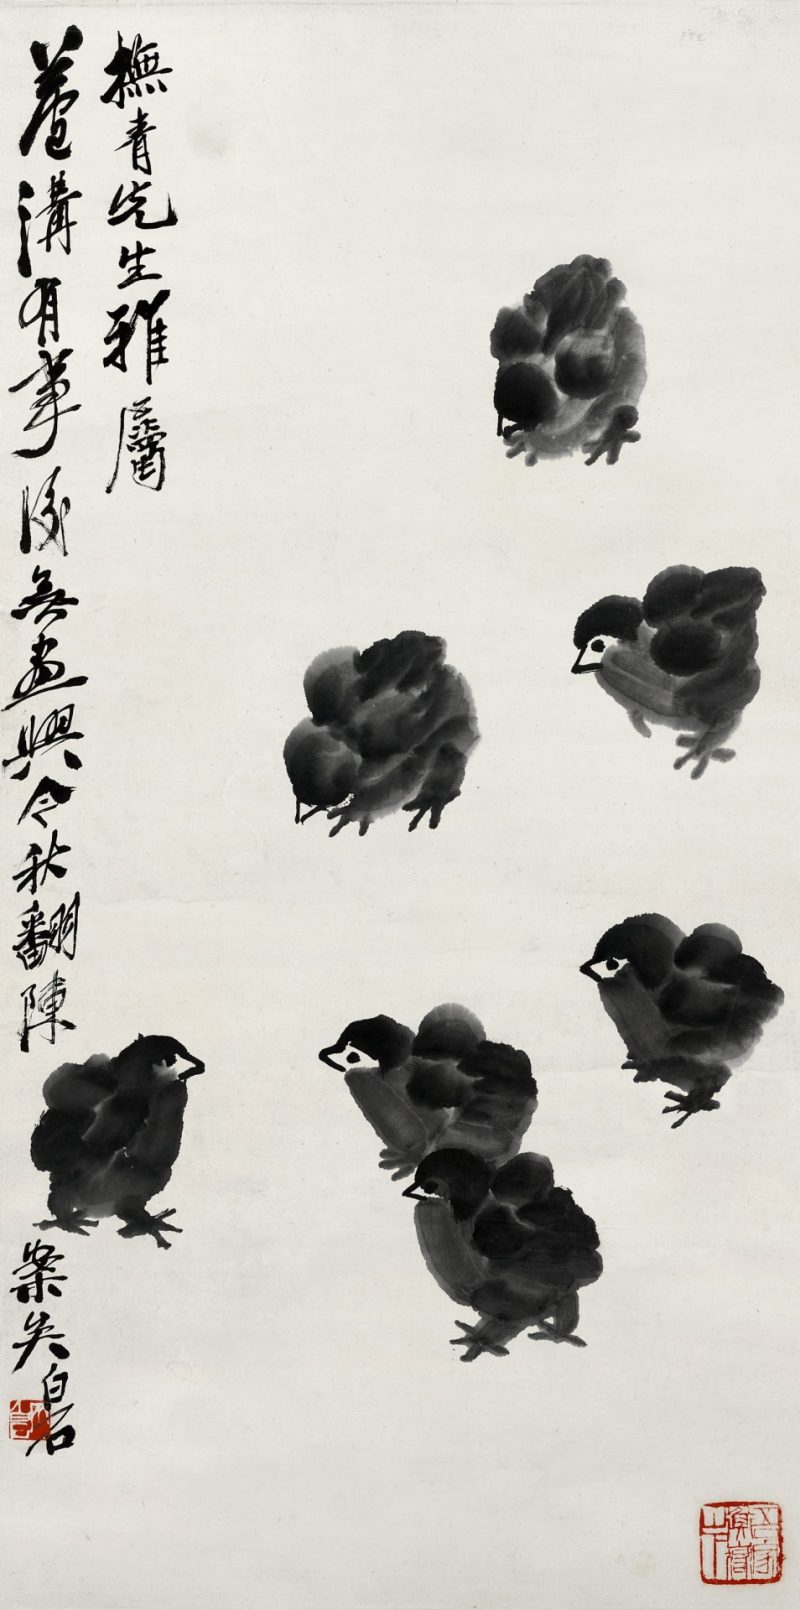 撫青先生雅屬
蘆溝有事後無畫興今秋翻陳
案矣白石